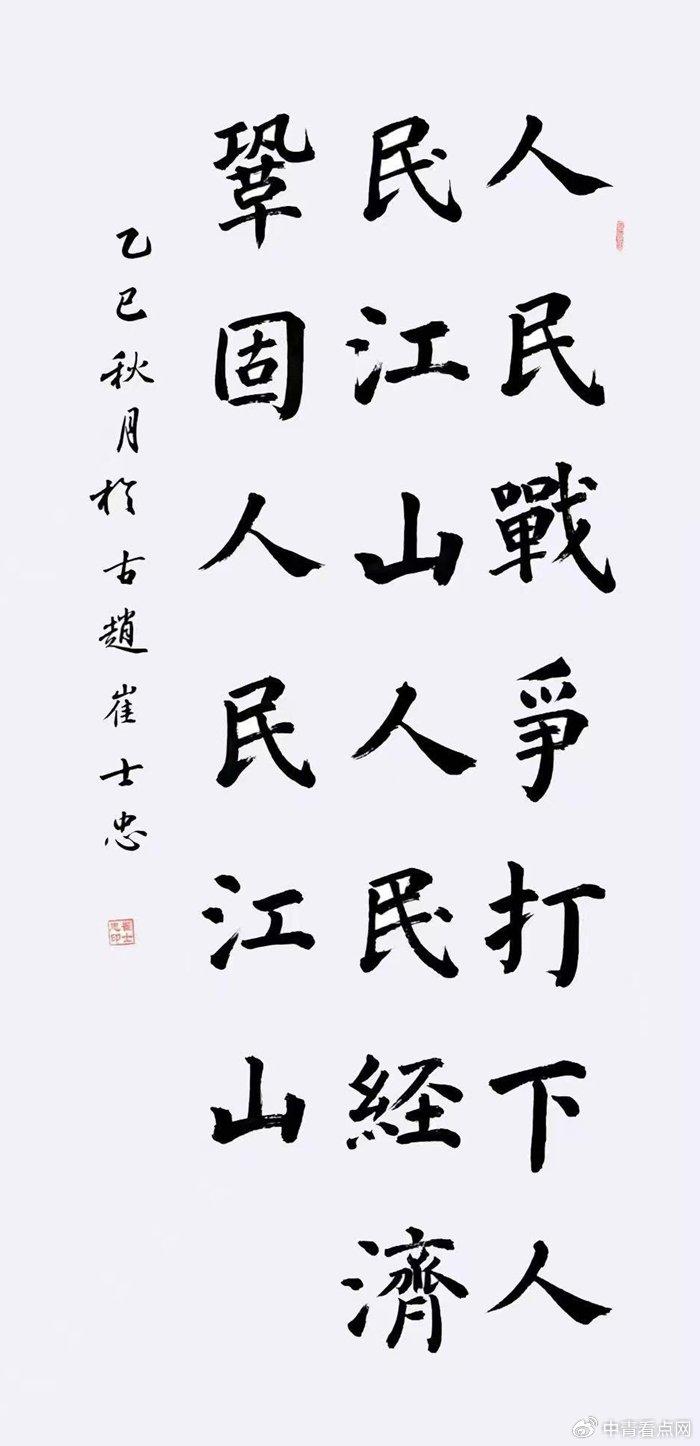 人民戰爭打下人
民江山人民経濟
鞏固人民江山
乙巳秋月於古趙崔士忠
崔士忠印
中青看点网